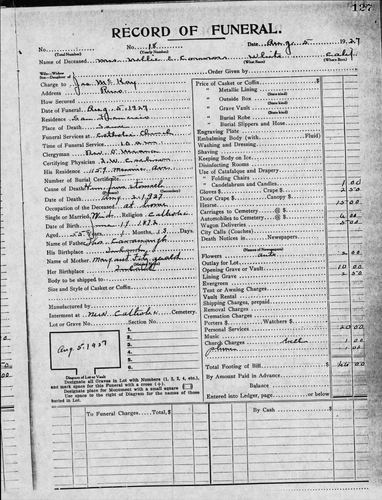 127
RECORD OF FUNERAL.
No. No. 18 Date Aug. 5 1927
(Total Number) (Yearly Number)
Name of Deceased Mrs. Nellie C. White Calif.
(What Race) (Where Born)
Wife-Widow
Son-Daughter of
Charge to Jas. McKay
Address Reno
How Secured
Date of Funeral Aug. 5, 1927
Residence San Francisco
Place of Death Same
Funeral Services at Catholic Church
Time of Funeral Service 10 a.m.
Clergyman Rev.
Certifying Physician
His Residence
Number of Burial Certificate
Cause of Death
Date of Death Aug. 2, 1927
Occupation of the Deceased at home
Single or Married Wid. Religion Catholic
Date of Birth June 19, 1872
Aged 55 Years 1 Months 13 Days
Name of Father Thos. Cavanaugh
His Birthplace Ireland
Name of Mother Margaret Fitzgerald
Her Birthplace Ireland
Body to be shipped to
Size and Style of Casket or Coffin
Manufactured by
Interment at New Catholic Cemetery.
Lot or Grave No. Section No.
Aug. 5, 1927
1.
2.
3.
4.
5.
6.
Diagram of Lot or Vault
Designate all Graves in Lot with Numbers (1, 2, 3, 4, etc.),
and mark space for this Funeral with a cross (+).
Designate place for Monument with a small square
Use space to the right of Diagram for the names of those
Buried in Lot.
Order Given by
Price of Casket or Coffin $
" Metallic Lining
(State kind)
" Outside Box
(State kind)
" Grave Vault
(State kind)
" Burial Robe
(State kind)
" Burial Slippers and Hose
Engraving Plate
Embalming Body (with Fluid)
Washing and Dressing
Shaving
Keeping Body on Ice
Disinfecting Rooms
Use of Catafalque and Drapery
" Folding Chairs
" Candelabrum and Candles 1 00
Gloves $ Crape $ 2 50
Door Crape $ Canopy $
Hearse 15 00
Carriages to Cemetery @ $
Automobiles to Cemetery @ $
Wagon Delivery 5 00
City Calls (Coaches)
Death Notices in Newspapers
Flowers auto 2 00
Outlay for Lot
Opening Grave or Vault 10 00
Lining Grave 2 50
Evergreen
Tent or Awning Charges
Vault Rental
Shipping Charges, prepaid
Removal Charges
Cremation Charges
Porters $ Watchers $
Personal Services
Music
Church Charges bell 1 00
Total Footing of Bill $
By Amount Paid in Advance
Balance
Entered into Ledger, page or below.
To Funeral Charges, Total $ By Cash $